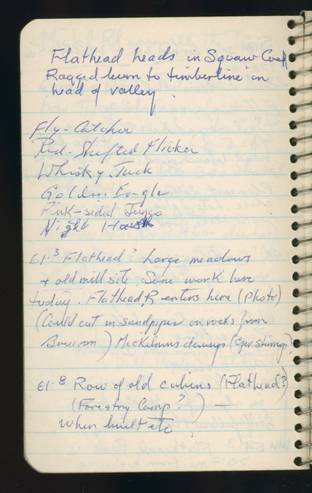 Flathead heads in Squaw Creek
Ragged burn to timberline on
head of valley
Fly-Catcher
Red-Shafted Flicker
Whisky-Jack
Golden Eagle
Pink-sided Junco
Night Hawk
61.3 Flathead? Large meadows
+ old mill site Some work here
today. Flathead R enters here (photo)
(Could cut in sandpiper on rocks from
) McKillimus cleanups
61.8 Row of old cabins (Flathead?)
(Forestry Camp?) —
When built etc